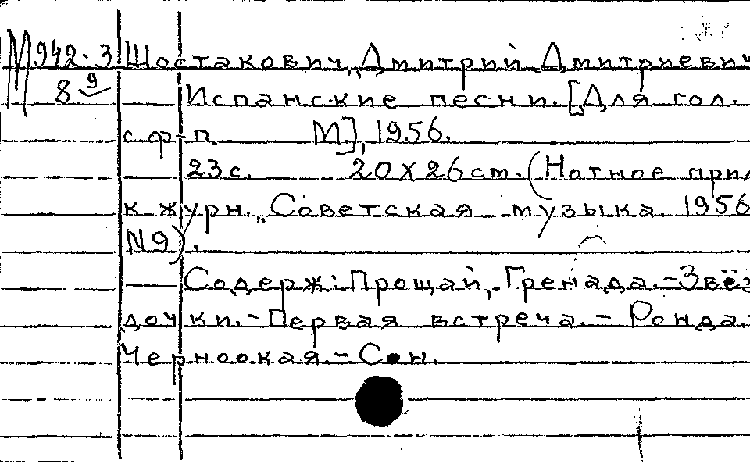 М942.3 Шостакович, Дмитрий Дмитриевич
8 9 Испанские песни. [Для гол.
с ф-п. М], 1956.
23 с. 20 X 26 cm. (Нотное прил
к журн. „Советская музыка. 1956
N9).
Содерж: Прощай, Гренада. - Звёз
дочки. - Первая встреча. - Ронда. -
Черноокая. - Сон.